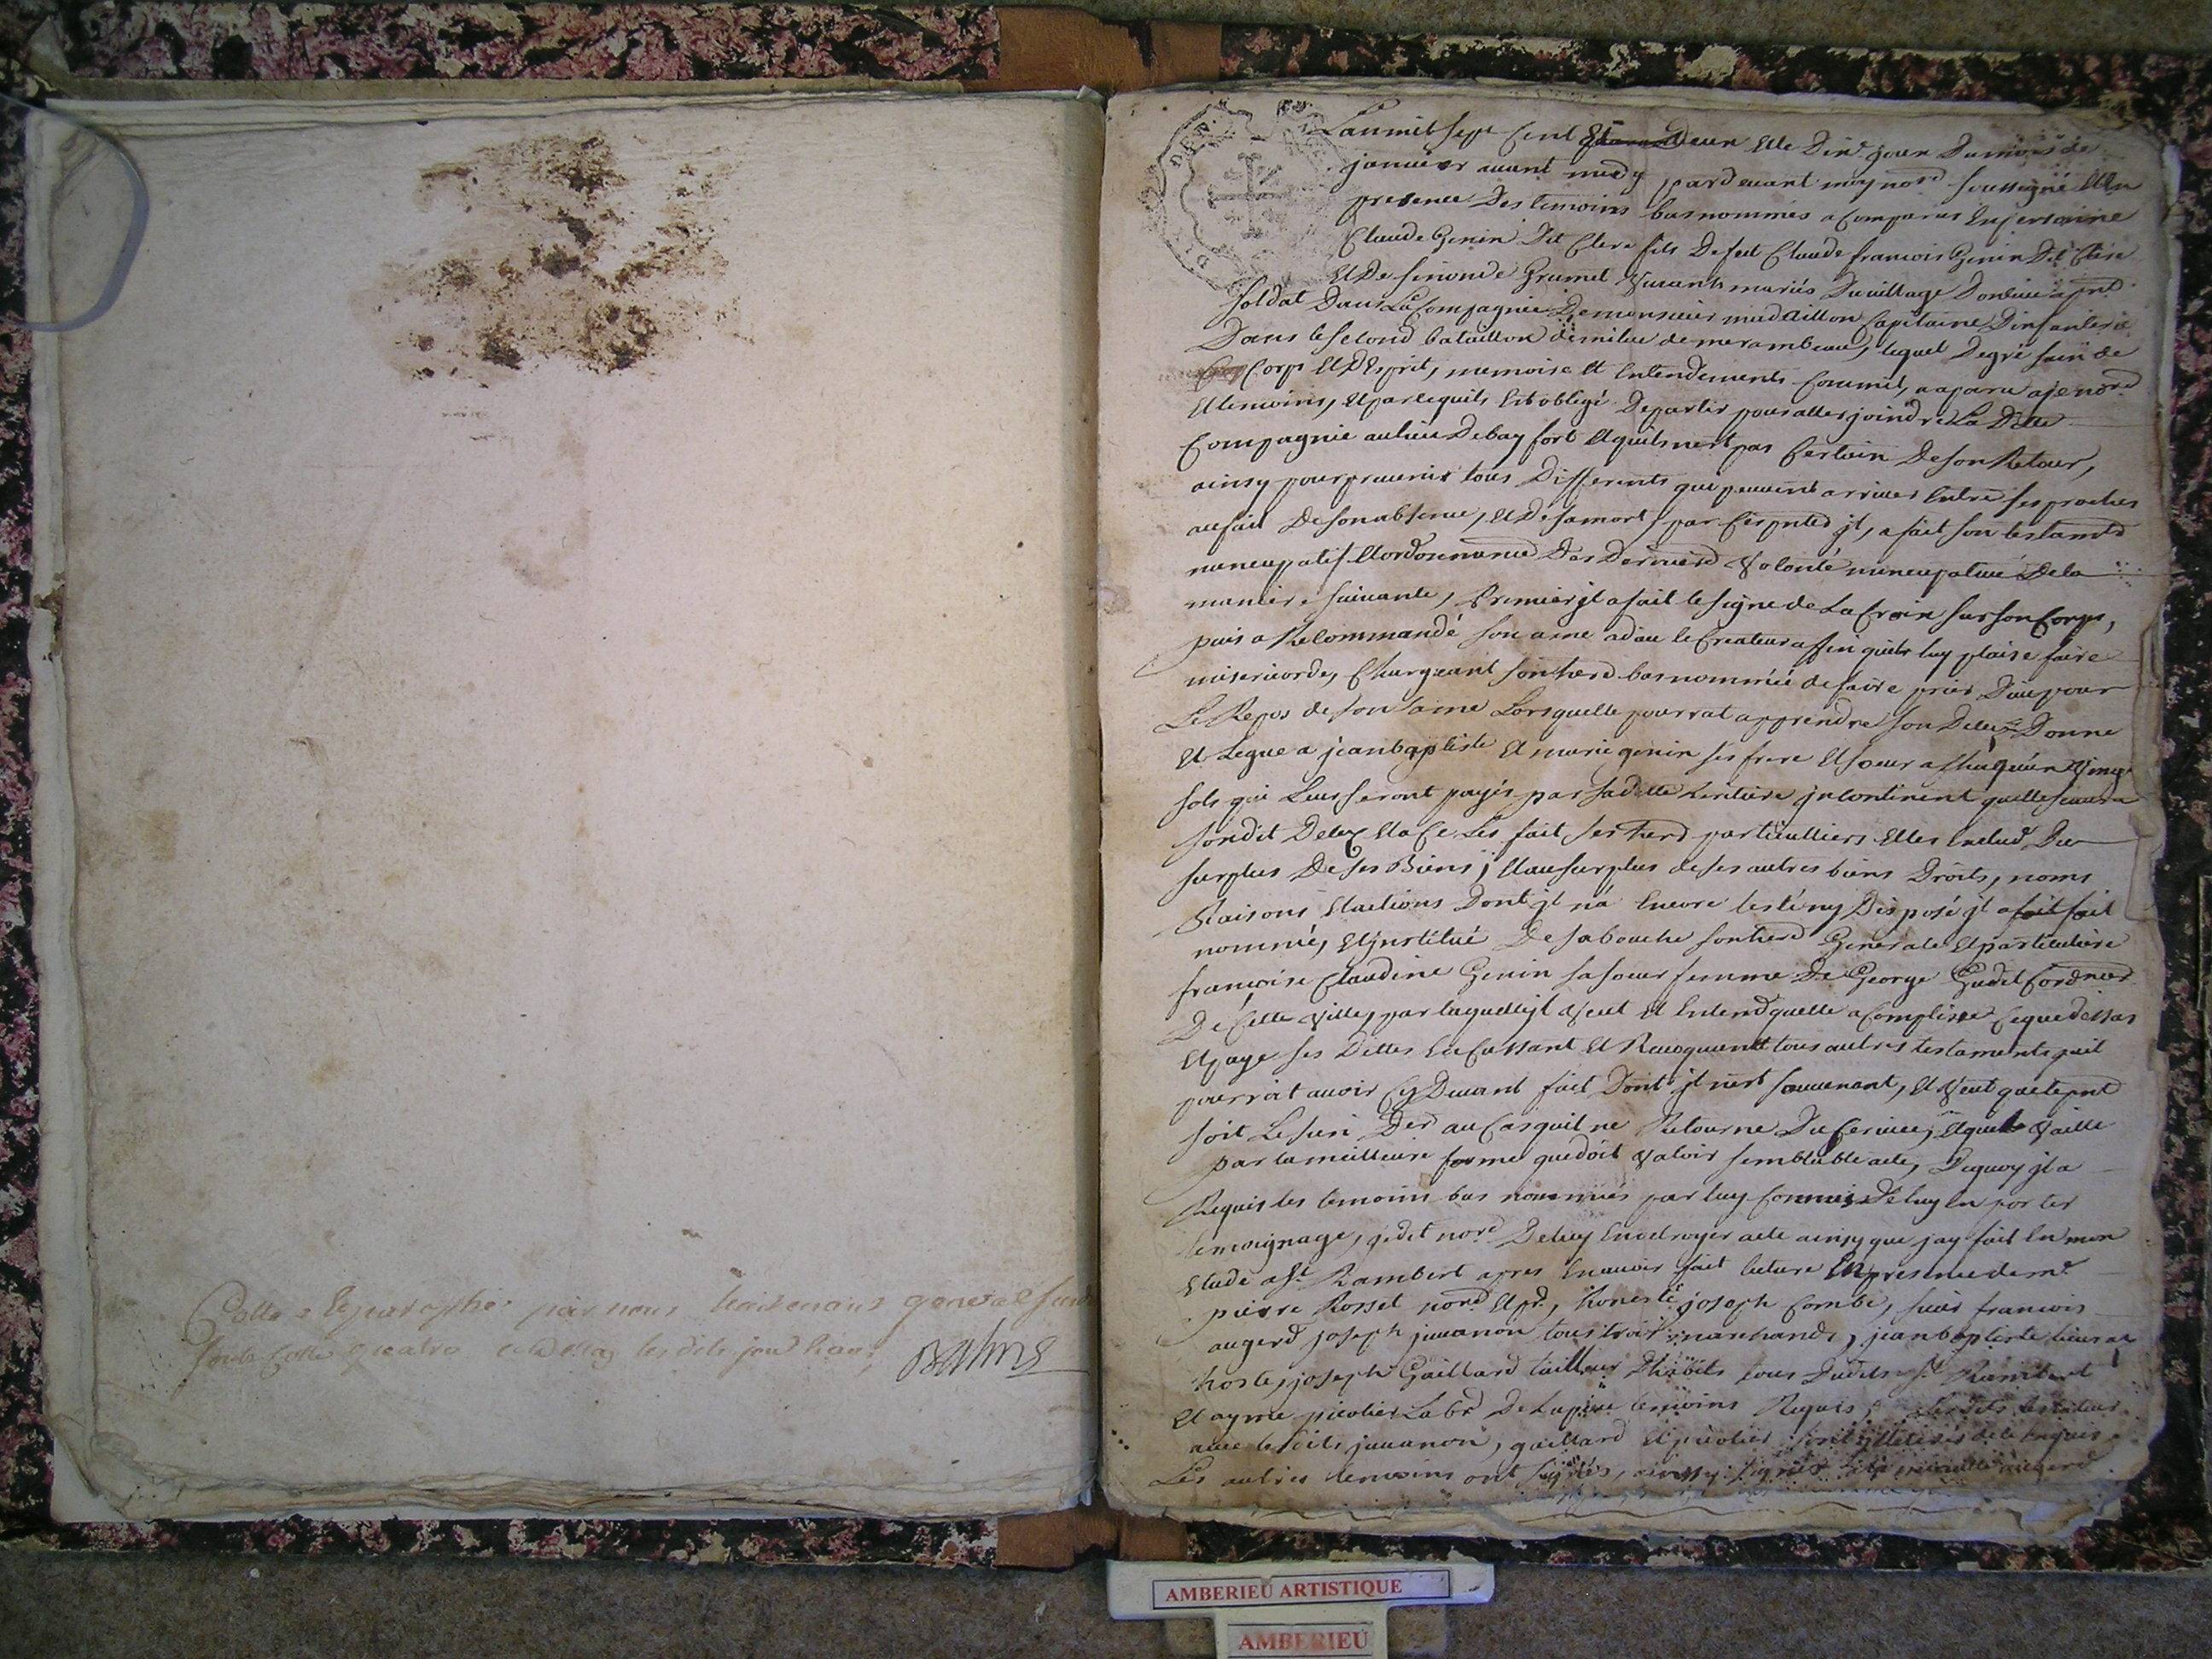 Cotté et paraphé par nous lieutenant general
soub cotté quatre les dits jour
Balme
L'an mil sept cent deux et le jour du mois de
janvier avant midy pardevant moy nore soussigné et en
presence des temoins bas nommés a comparu en personne
Claude Genin dit Clere fils de feu Claude francois Genin dit Clere
et de simonde Grumet vivants mariés du village
soldat dans la Compagnie de monsieur Capitaine d'infanterie
dans le second bataillon de milice de lequel de gré sain de
Corps et d'Esprit, memoire et entendement
et temoins, et parlequils est obligé de partir pour aller joindre la ditte
Compagnie au lieu de bayfort et quils nest pas certain de son Retour,
ainsy pour prevenir tous differents qui peuvent arriver entre ses proches
au fait de son absence, et de sa mort, par ces pntes jl, a fait son testamt
nuncupatif et ordonnance des derniere volonté nuncupative de la
maniere suivante, Premier jl a fait le signe de La Croix sur son Corps,
puis a Recommandé son ame a dieu le Createur affin quils luy plaise faire
misericorde, Chargeant son herd bas nommée de faire prier Dieu pour
Le Repos de son ame Lorsquelle pourrat apprendre son Deces Donne
et Legue a jean baptiste et marie genin ses frere et soeur a chaquun vingt
sols qui Leur seront payés par sa ditte heritiere jncontinent quelle scaura
son dit Decex et a Ce Les fait ses herd particulliers et les du
surplus de ses Biens; et au surplus de ses autres biens Droits, noms
Raisons et actions dont jl n'a encore testé ny Disposé jl a fait
nommé, et jnstitué de sa bouche son herd Generale et particuliere
francoise Claudine Genin sa soeur femme de George Cordnier
De Cette ville, par laquelle jl veut et entend quelle acomplisse Ce que dessus
et paye ses Dettes En Cassant et Revoquant tous autres testaments quil
pourroit avoir Cy Devant fait dont jl nest souvenant, et veut que le pnt
soit Le sien Der au Cas quil ne Retourne Du Service, et quil vaille
par la meilleure forme que doit valoir semblable acte, Dequoy jl a
Requis les temoins bas nommés par luy Connus de luy en porter
temoignage, et dit nore De luy En octroyer acte ainsy que jay fait En mon
Etude a St Rambert apres En avoir fait lecture En presence de mr
pierre Rosset nore et pr, honeste joseph Combe, sieur francois
augerd joseph juvanon tous trois marchands, jean baptiste
hoste, joseph Gaillard tailleur d'habits tous dudit St Rambert
et ayme picolier Labr De Lupieu temoins Requis, Le dit testateur
avec le dits juvanon, gaillard et picolier de Enquis
Les autres temoins ont signés, ainsy signés
AMBERIEU ARTISTIQUE
AMBERIEU